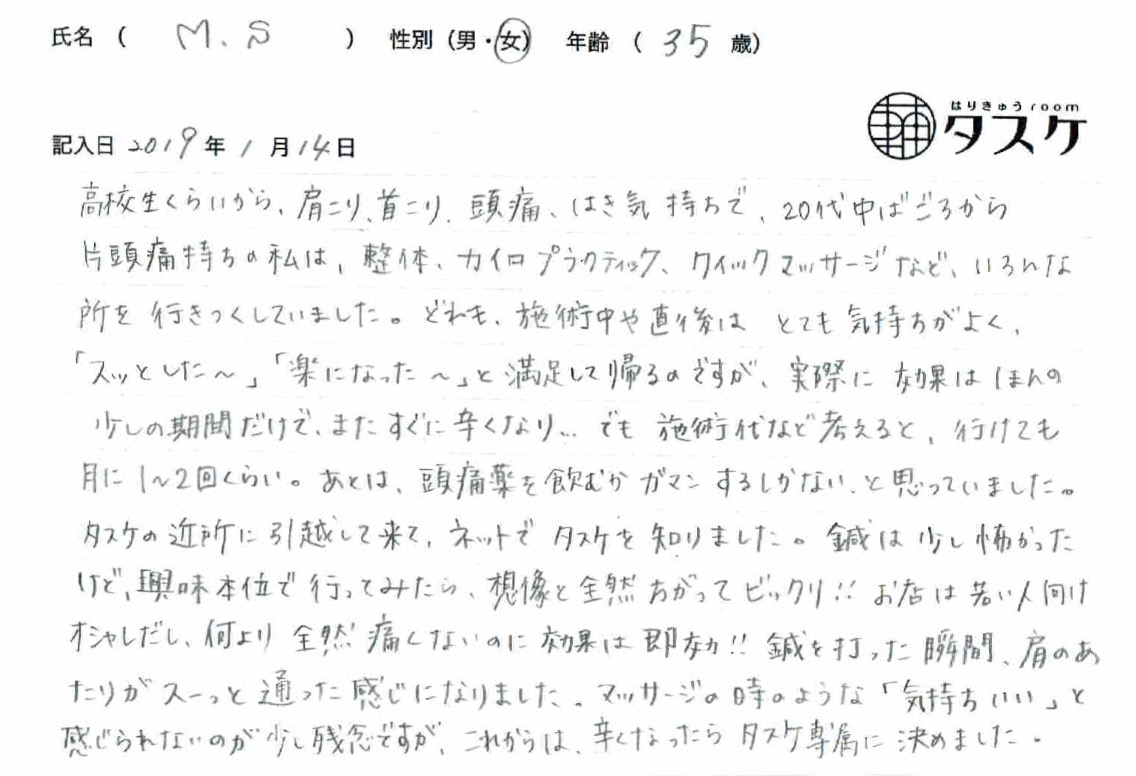 氏名 ( M.S ) 性別 (男・女) 年齢 ( 35 歳)
はりきゅうroom
タスケ
記入日 2019年 1月14日
高校生くらいから、肩こり、首こり、頭痛、はき気持ちで、20代中ばごろから
片頭痛持ちの私は、整体、カイロプラクティック、クイックマッサージなど、いろんな
所を行きつくしていました。どれも、施術中や直後はとても気持ちがよく、
「スッとした〜」「楽になった〜」と満足して帰るのですが、実際に効果はほんの
少しの期間だけで、またすぐに辛くなり… でも施術代など考えると、行けても
月に1〜2回くらい。あとは、頭痛薬を飲むかガマンするしかない、と思っていました。
タスケの近所に引越して来て、ネットでタスケを知りました。鍼は少し怖かった
けど、興味本位で行ってみたら、想像と全然ちがってビックリ!! お店は若い人向け
オシャレだし、何より全然痛くないのに効果は即効!! 鍼を打った瞬間、肩のあ
たりがスーっと通った感じになりました。マッサージの時のような「気持ちいい」と
感じられないのが少し残念ですが、これからは、辛くなったらタスケ専属に決めました。